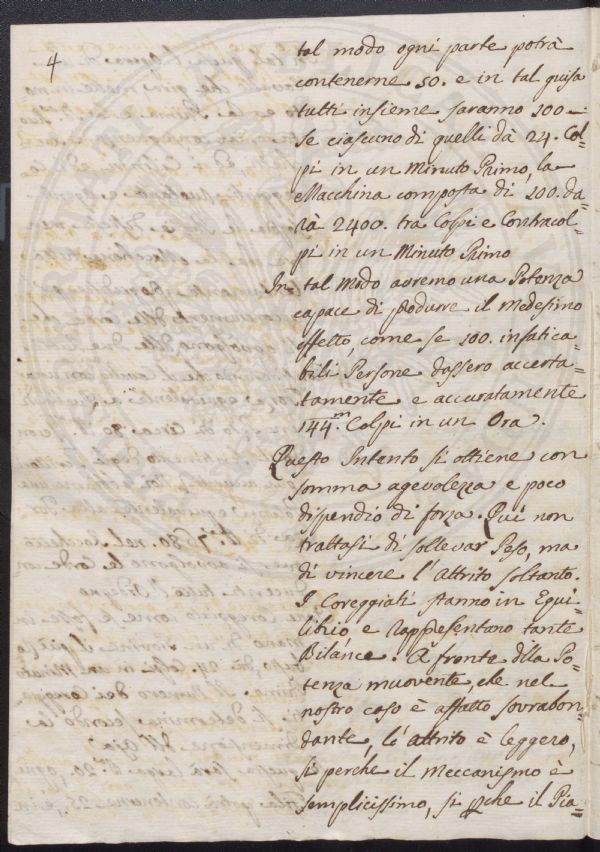 4
tal modo ogni parte potrà
contenerne 50. e in tal guisa
tutti insieme saranno 100 —
se ciascuno di quelli dà 24. Col=
pi in un Minuto Primo, la
Macchina composta di 100. da=
rà 2400. tra Colpi e Contracol=
pi in un Minuto Primo
In tal Modo avremo una Potenza
capace di produrre il Medesimo
effetto, come se 100. infatica=
bili Persone dassero accerta=
tamente e accuratamente
144.m Colpi in un Ora.
Questo Intento si ottiene con
somma agevolezza e poco
dispendio di forza. Quì non
trattasi di sollevar Peso, ma
di vincere l'Attrito soltanto.
I Coreggiati stanno in Equi=
librio, e rappresentano tante
Bilance. A fronte dlla Po=
tenza muovente, che nel
nostro caso è affatto sovrabon=
dante, l'attrito è leggero,
si perche il Meccanismo è
semplicissimo, si pche il Pia=